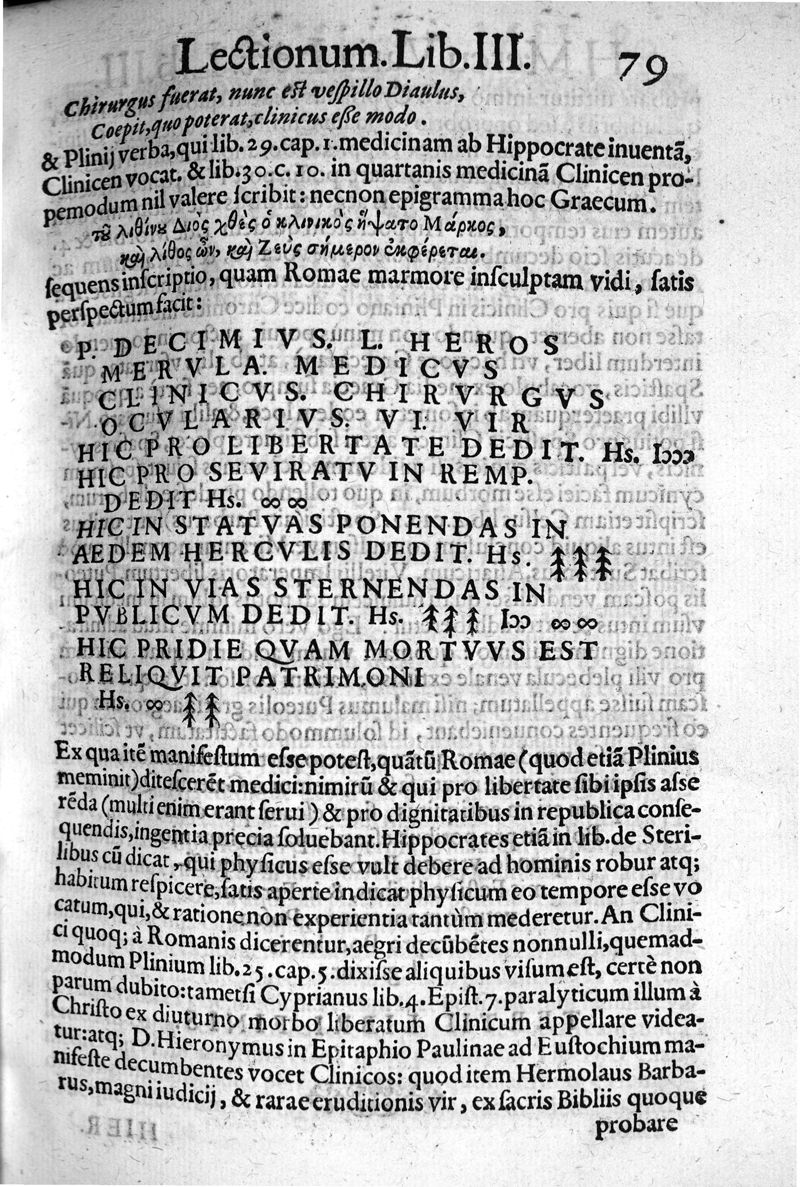 Lectionum. Lib. III. 79
Chirurgus fuerat, nunc est vespillo Diaulus,
Coepit, quo poterat, clinicus esse modo.
& Plinij verba, qui lib. 29. cap. 1. medicinam ab Hippocrate inuentã,
Clinicen vocat. & lib. 30. c. 10. in quartanis medicinã Clinicen pro-
pemodum nil valere scribit: necnon epigramma hoc Graecum.
τοῦ λιθίνου Διὸς χθὲς ὁ κλινικὸς ἥψατο Μάρκος,
καὶ λίθος ὢν, καὶ Ζεὺς σήμερον ἐκφέρεται.
sequens inscriptio, quam Romae marmore insculptam vidi, satis
perspectum facit:
P. DECIMIVS. L. HEROS
MERVLA. MEDICVS
CLINICVS. CHIRVRGVS
OCVLARIVS. VI. VIR
HIC PRO LIBERTATE DEDIT. Hs. Iↄↄↄ
HIC PRO SEVIRATV IN REMP.
DEDIT Hs. ∞ ∞
HIC IN STATVAS PONENDAS IN
AEDEM HERCVLIS DEDIT. Hs.
HIC IN VIAS STERNENDAS IN
PVBLICVM DEDIT. Hs. Iↄↄ ∞ ∞
HIC PRIDIE QVAM MORTVVS EST
RELIQVIT PATRIMONI
Hs. ∞
Ex qua itẽ manifestum esse potest, quãtũ Romae (quod etiã Plinius
meminit) ditescerẽt medici: nimirũ & qui pro libertate sibi ipsis asse
rẽda (multi enim erant serui) & pro dignitatibus in republica conse-
quendis, ingentia precia soluebant. Hippocrates etiã in lib. de Steri-
libus cũ dicat, qui physicus esse vult debere ad hominis robur atq;
habitum respicere, satis aperte indicat physicum eo tempore esse vo
catum, qui, & ratione non experientia tantùm mederetur. An Clini-
ci quoq; à Romanis dicerentur, aegri decũbẽtes nonnulli, quemad-
modum Plinium lib. 25. cap. 5. dixisse aliquibus visum est, certè non
parum dubito: tametsi Cyprianus lib. 4. Epist. 7. paralyticum illum à
Christo ex diuturno morbo liberatum Clinicum appellare videa-
tur: atq; D. Hieronymus in Epitaphio Paulinae ad Eustochium ma-
nifeste decumbentes vocet Clinicos: quod item Hermolaus Barba-
rus, magni iudicij, & rarae eruditionis vir, ex sacris Bibliis quoque
probare